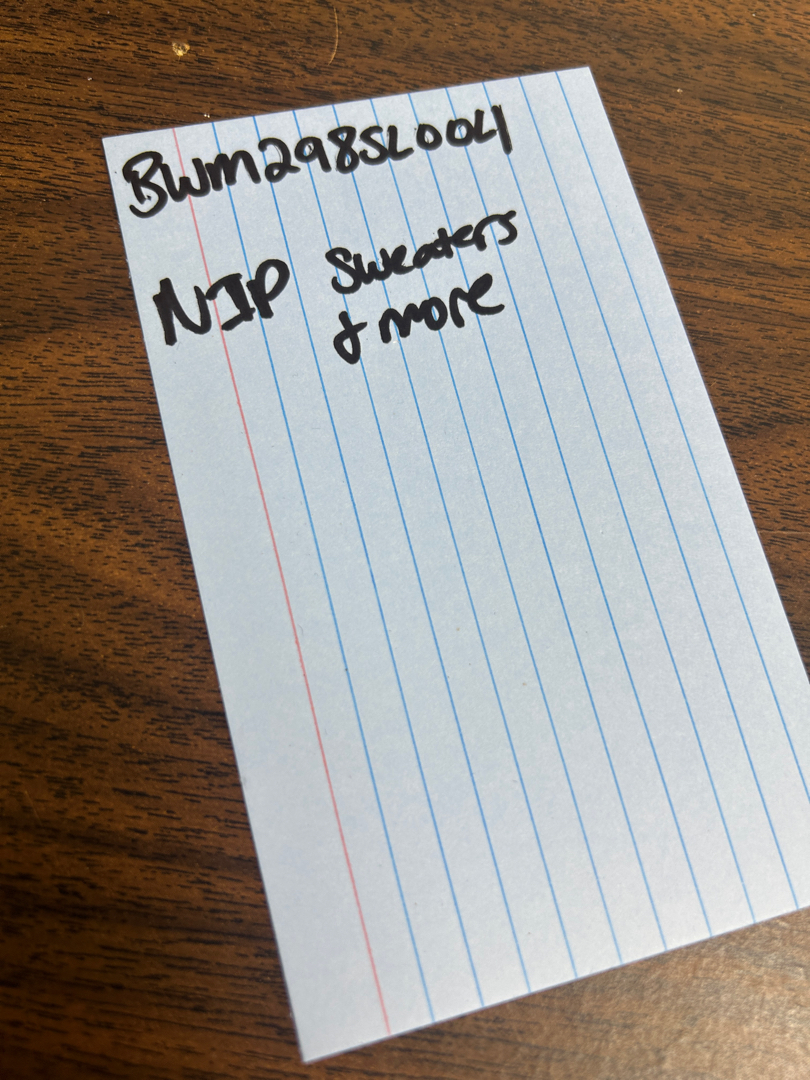 BWM298SL004
NIP Sweaters
& more